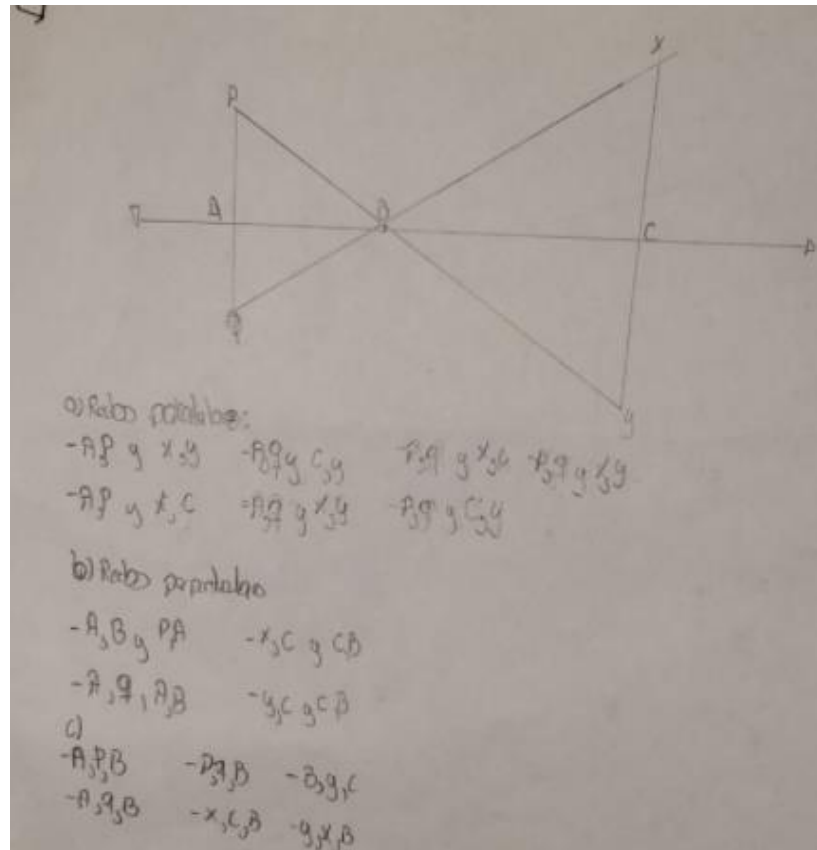 X
P
A
B
C
Q
y
a) Rectas paralelas:
-A,P y X,Y -A,q y C,y -P,q y X,C -P,q y X,y
-A,P y X,C -A,q y X,y -P,q y C,y
b) Rectas
-A,B y P,A -X,C y CB
-A,q, A,B -y,C y CB
c)
-A,P,B -P,q,B -B,y,C
-A,q,B -X,C,B -y,X,B